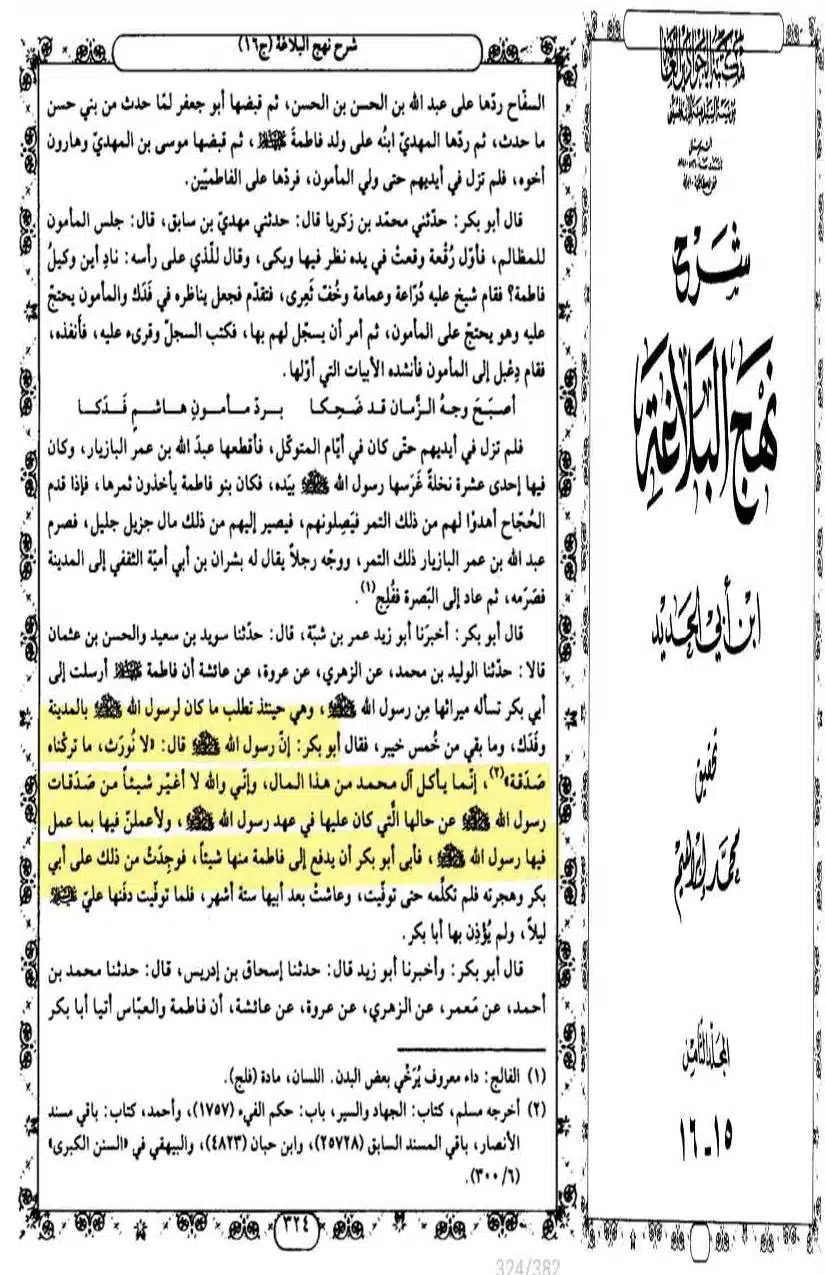 شرح نهج البلاغة (ج١٦)
السفّاح ردّها على عبد الله بن الحسن بن الحسن، ثم قبضها أبو جعفر لمّا حدث من بني حسن
ما حدث، ثم ردّها المهديّ ابنُه على ولد فاطمةَ ، ثم قبضها موسى بن المهديّ وهارون
أخوه، فلم تزل في أيديهم حتى ولي المأمون، فردّها على الفاطميّين.
قال أبو بكر: حدّثني محمّد بن زكريا قال: حدثني مهديّ بن سابق، قال: جلس المأمون
للمظالم، فأوّل رُقْعة وقعتْ في يده نظر فيها وبكى، وقال للّذي على رأسه: نادِ أين وكيلُ
فاطمة؟ فقام شيخ عليه دُرّاعة وعمامة وخُفّ تَعِزى، فتقدّم فجعل يناظره في فَدَك والمأمون يحتجّ
عليه وهو يحتجّ على المأمون، ثم أمر أن يسجّل لهم بها، فكتب السجلّ وقرىء عليه، فأنفذه،
فقام دِعْبل إلى المأمون فأنشده الأبيات التي أوّلها.
أصبَحَ وجهُ الزّمان قد ضَحِكا بردّ مأمونِ هاشمٍ فَدَكا
فلم تزل في أيديهم حتّى كان في أيّام المتوكّل، فأقطعها عبدَ الله بن عمر البازيار، وكان
فيها إحدى عشرة نخلةً غَرَسها رسول الله ﷺ بيّده، فكان بنو فاطمة يأخذون ثمرها، فإذا قدم
الحُجّاج أهدوْا لهم من ذلك التمر فيَصِلونهم، فيصير إليهم من ذلك مال جزيل جليل، فصرم
عبد الله بن عمر البازيار ذلك التمر، ووجّه رجلاً يقال له بشران بن أبي أميّة الثقفي إلى المدينة
فصَرَمه، ثم عاد إلى البَصرة ففُلِج(١).
قال أبو بكر: أخبرَنا أبو زيد عمر بن شبّة، قال: حدّثنا سويد بن سعيد والحسن بن عثمان
قالا: حدّثنا الوليد بن محمد، عن الزهري، عن عروة، عن عائشة أن فاطمة أرسلت إلى
أبي بكر تسأله ميراثها مِن رسول الله ﷺ، وهي حينئذ تطلب ما كان لرسول الله ﷺ بالمدينة
وفَدَك، وما بقي من خُمس خيبر، فقال أبو بكر: إنّ رسول الله ﷺ قال: «لا نُورَث، ما تركْناه
صَدَقة»(٢)، إنّما يأكل آل محمد من هذا المال، وإنّي والله لا أغيّر شيئاً من صَدَقات
رسول الله ﷺ عن حالها الّتي كان عليها في عهد رسول الله ﷺ، ولأعملنّ فيها بما عمل
فيها رسول الله ﷺ، فأبى أبو بكر أن يدفع إلى فاطمة منها شيئاً، فوجدَتْ من ذلك على أبي
بكر وهجرته فلم تكلّمه حتى توفّيت، وعاشتْ بعد أبيها ستة أشهر، فلما توفّيت دفَنها عليّ
ليلاً، ولم يُؤْذِن بها أبا بكر.
قال أبو بكر: وأخبرنا أبو زيد قال: حدثنا إسحاق بن إدريس، قال: حدثنا محمد بن
أحمد، عن مَعمر، عن الزهري، عن عروة، عن عائشة، أن فاطمة والعبّاس أتيا أبا بكر
(١) الفالج: داء معروف يُرَخْي بعض البدن. اللسان، مادة (فلج).
(٢) أخرجه مسلم، كتاب: الجهاد والسير، باب: حكم الفيء (١٧٥٧)، وأحمد، كتاب: باقي مسند
الأنصار، باقي المسند السابق (٢٥٧٢٨)، وابن حبان (٤٨٢٣)، والبيهقي في «السنن الكبرى»
(٦/ ٣٠٠).
٣٢٤
324/382
شرح
نهج البلاغة
ابن أبي الحديد
تحقيق
محمد إبراهيم
المجلد الثامن
١٥ـ١٦